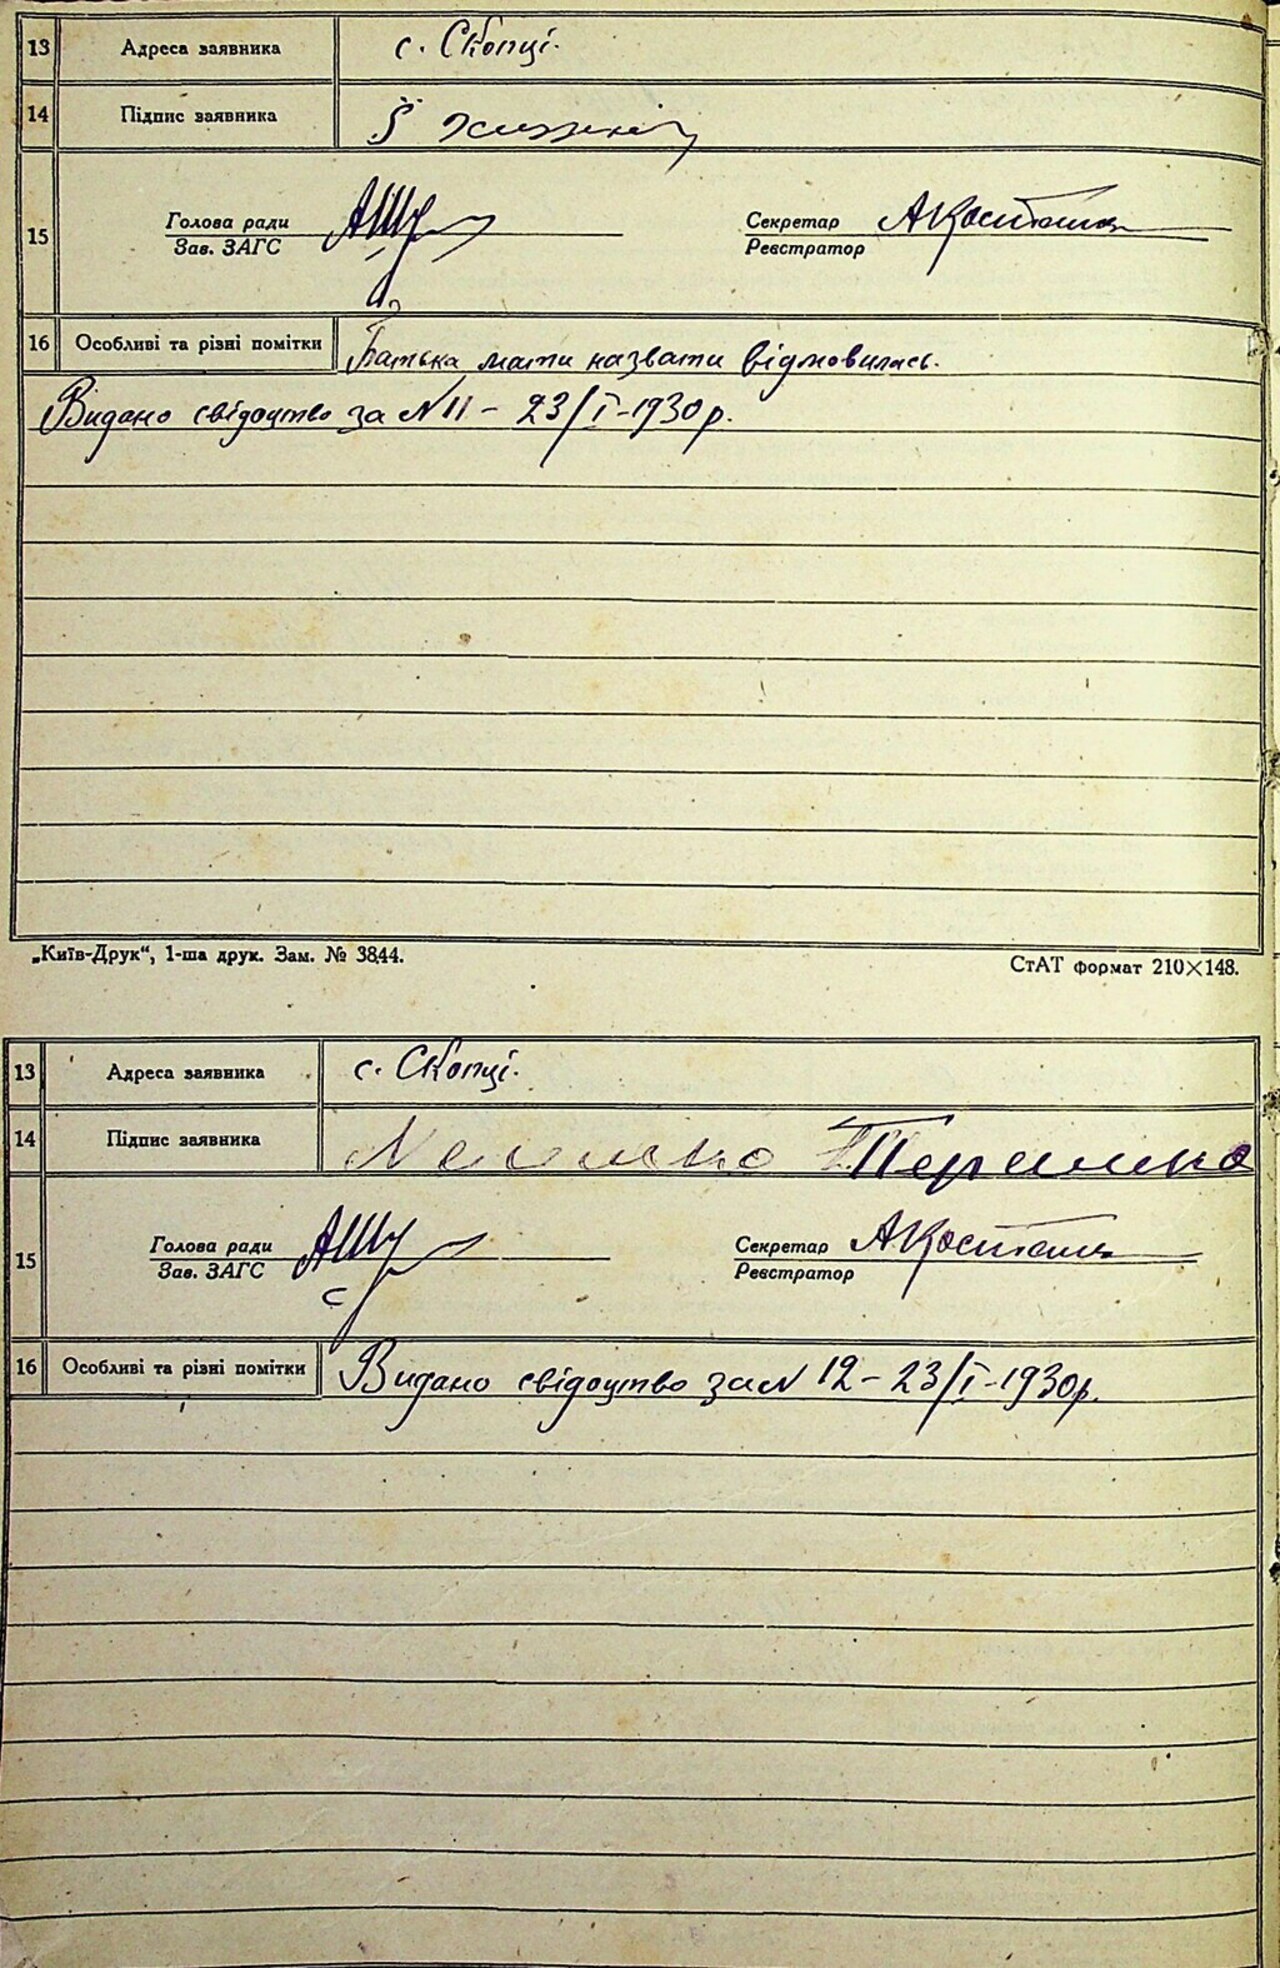 13 Адреса заявника с. Скопці.
14 Підпис заявника
15 Голова ради Секретар А Косташ
Зав. ЗАГС Реєстратор
16 Особливі та різні помітки Батька мати назвати відмовилась.
Видано свідоцтво за N 11 - 23/I-1930 р.
„Київ-Друк“, 1-ша друк. Зам. № 3844.
СтАТ формат 210×148.
13 Адреса заявника с. Скопці.
14 Підпис заявника
15 Голова ради Секретар А Косташ
Зав. ЗАГС Реєстратор
16 Особливі та різні помітки Видано свідоцтво за N 12 - 23/I-1930 р.